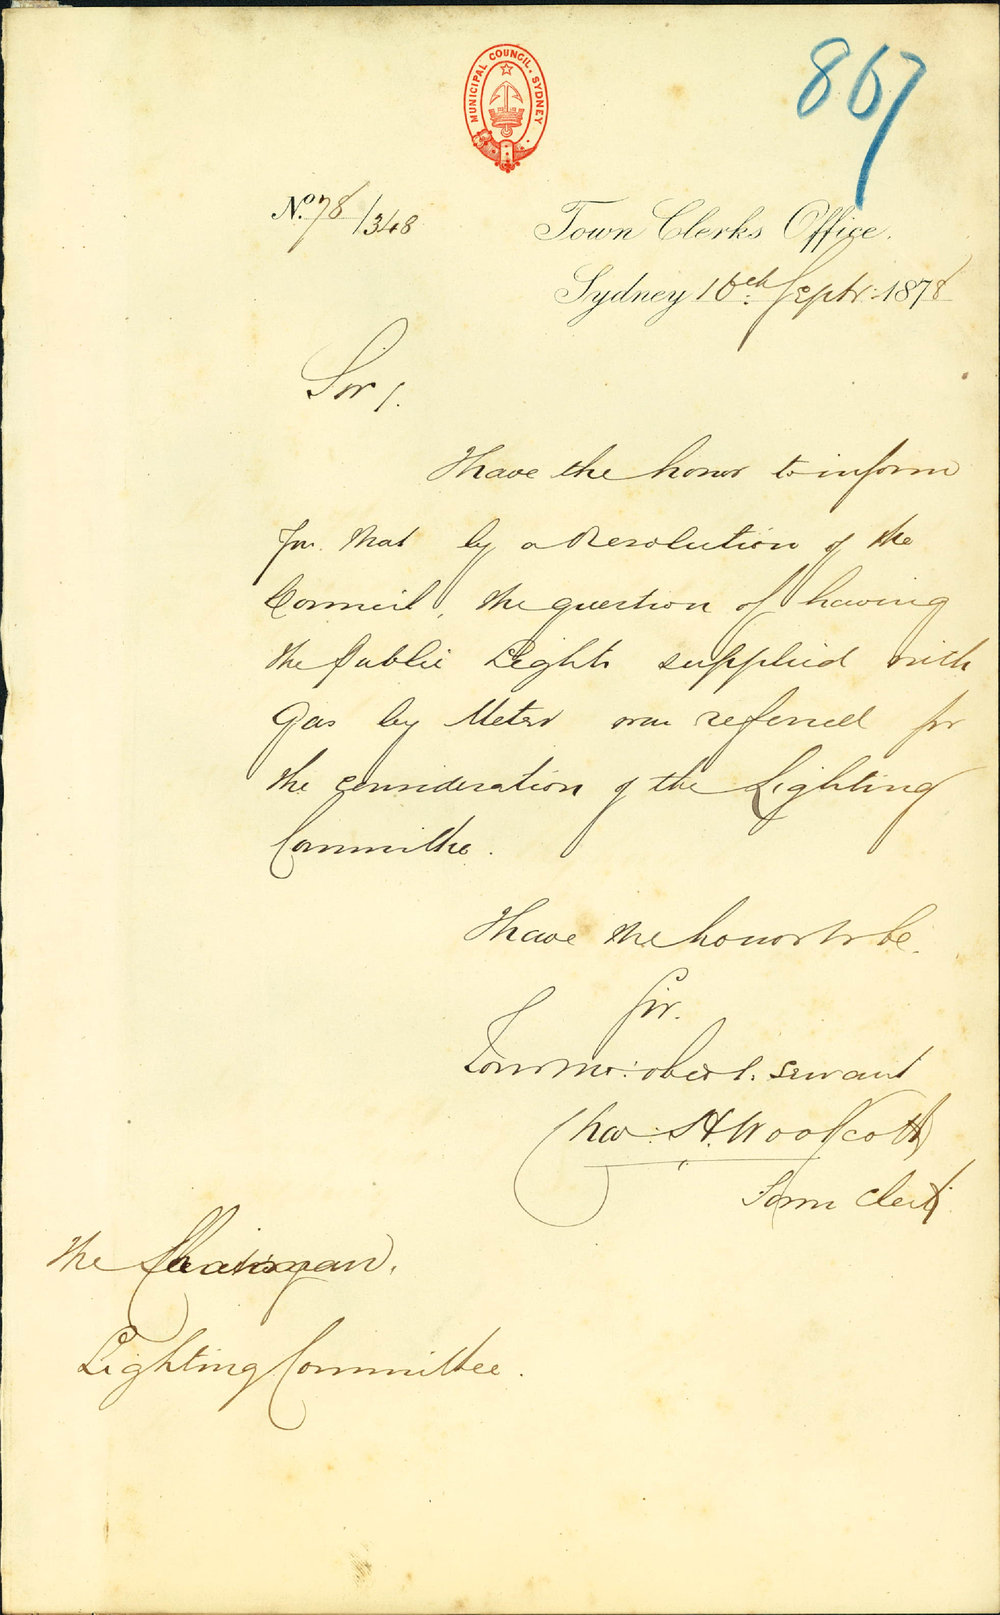 MUNICIPAL COUNCIL. SYDNEY
867
No. 78/348
Town Clerks Office.
Sydney 16th Septr. 1878
Sir /.
I have the honor to inform
you that by a Resolution of the
Council, the question of having
the Public Lights supplied with
Gas by Meter was referred for
the consideration of the Lighting
Committee.
I have the honor to be.
Sir.
Your mo: obed t. servant
Chas: H. Woolcott
Town Clerk
The Chairman.
Lighting Committee.